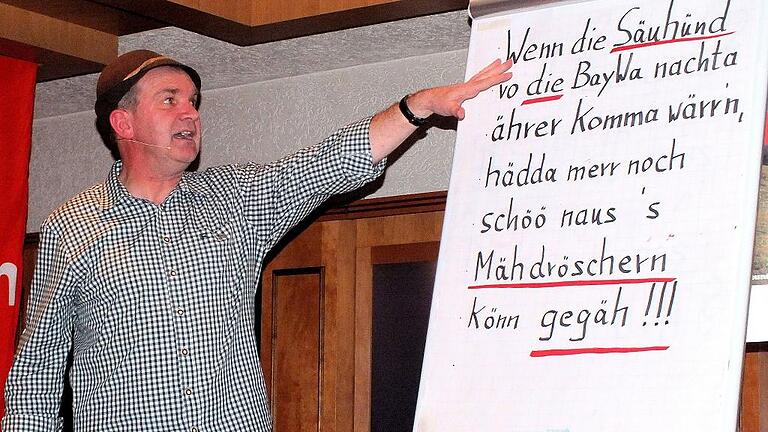 Wenn die Säuhünd
vo die BayWa nachta
ährer Komma wärr'n,
hädda merr noch
schöö naus 's
Mähdröschern
könn gegäh!!!
n